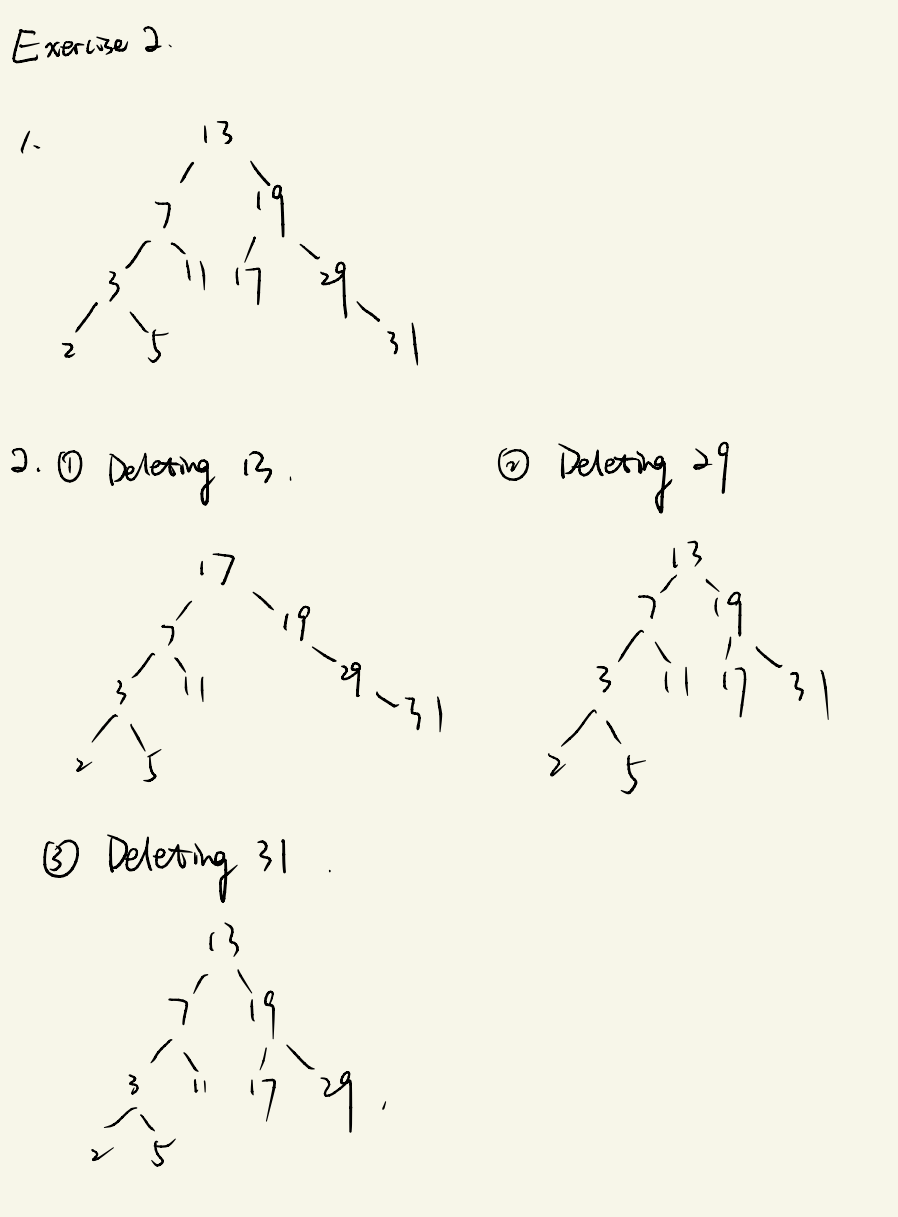 Exercise 2.
1.
13
7 19
3 11 17 29
2 5 31
2. ① Deleting 13.
17
7 19
3 11 29
2 5 31
② Deleting 29
13
7 19
3 11 17 31
2 5
③ Deleting 31.
13
7 19
3 11 17 29
2 5